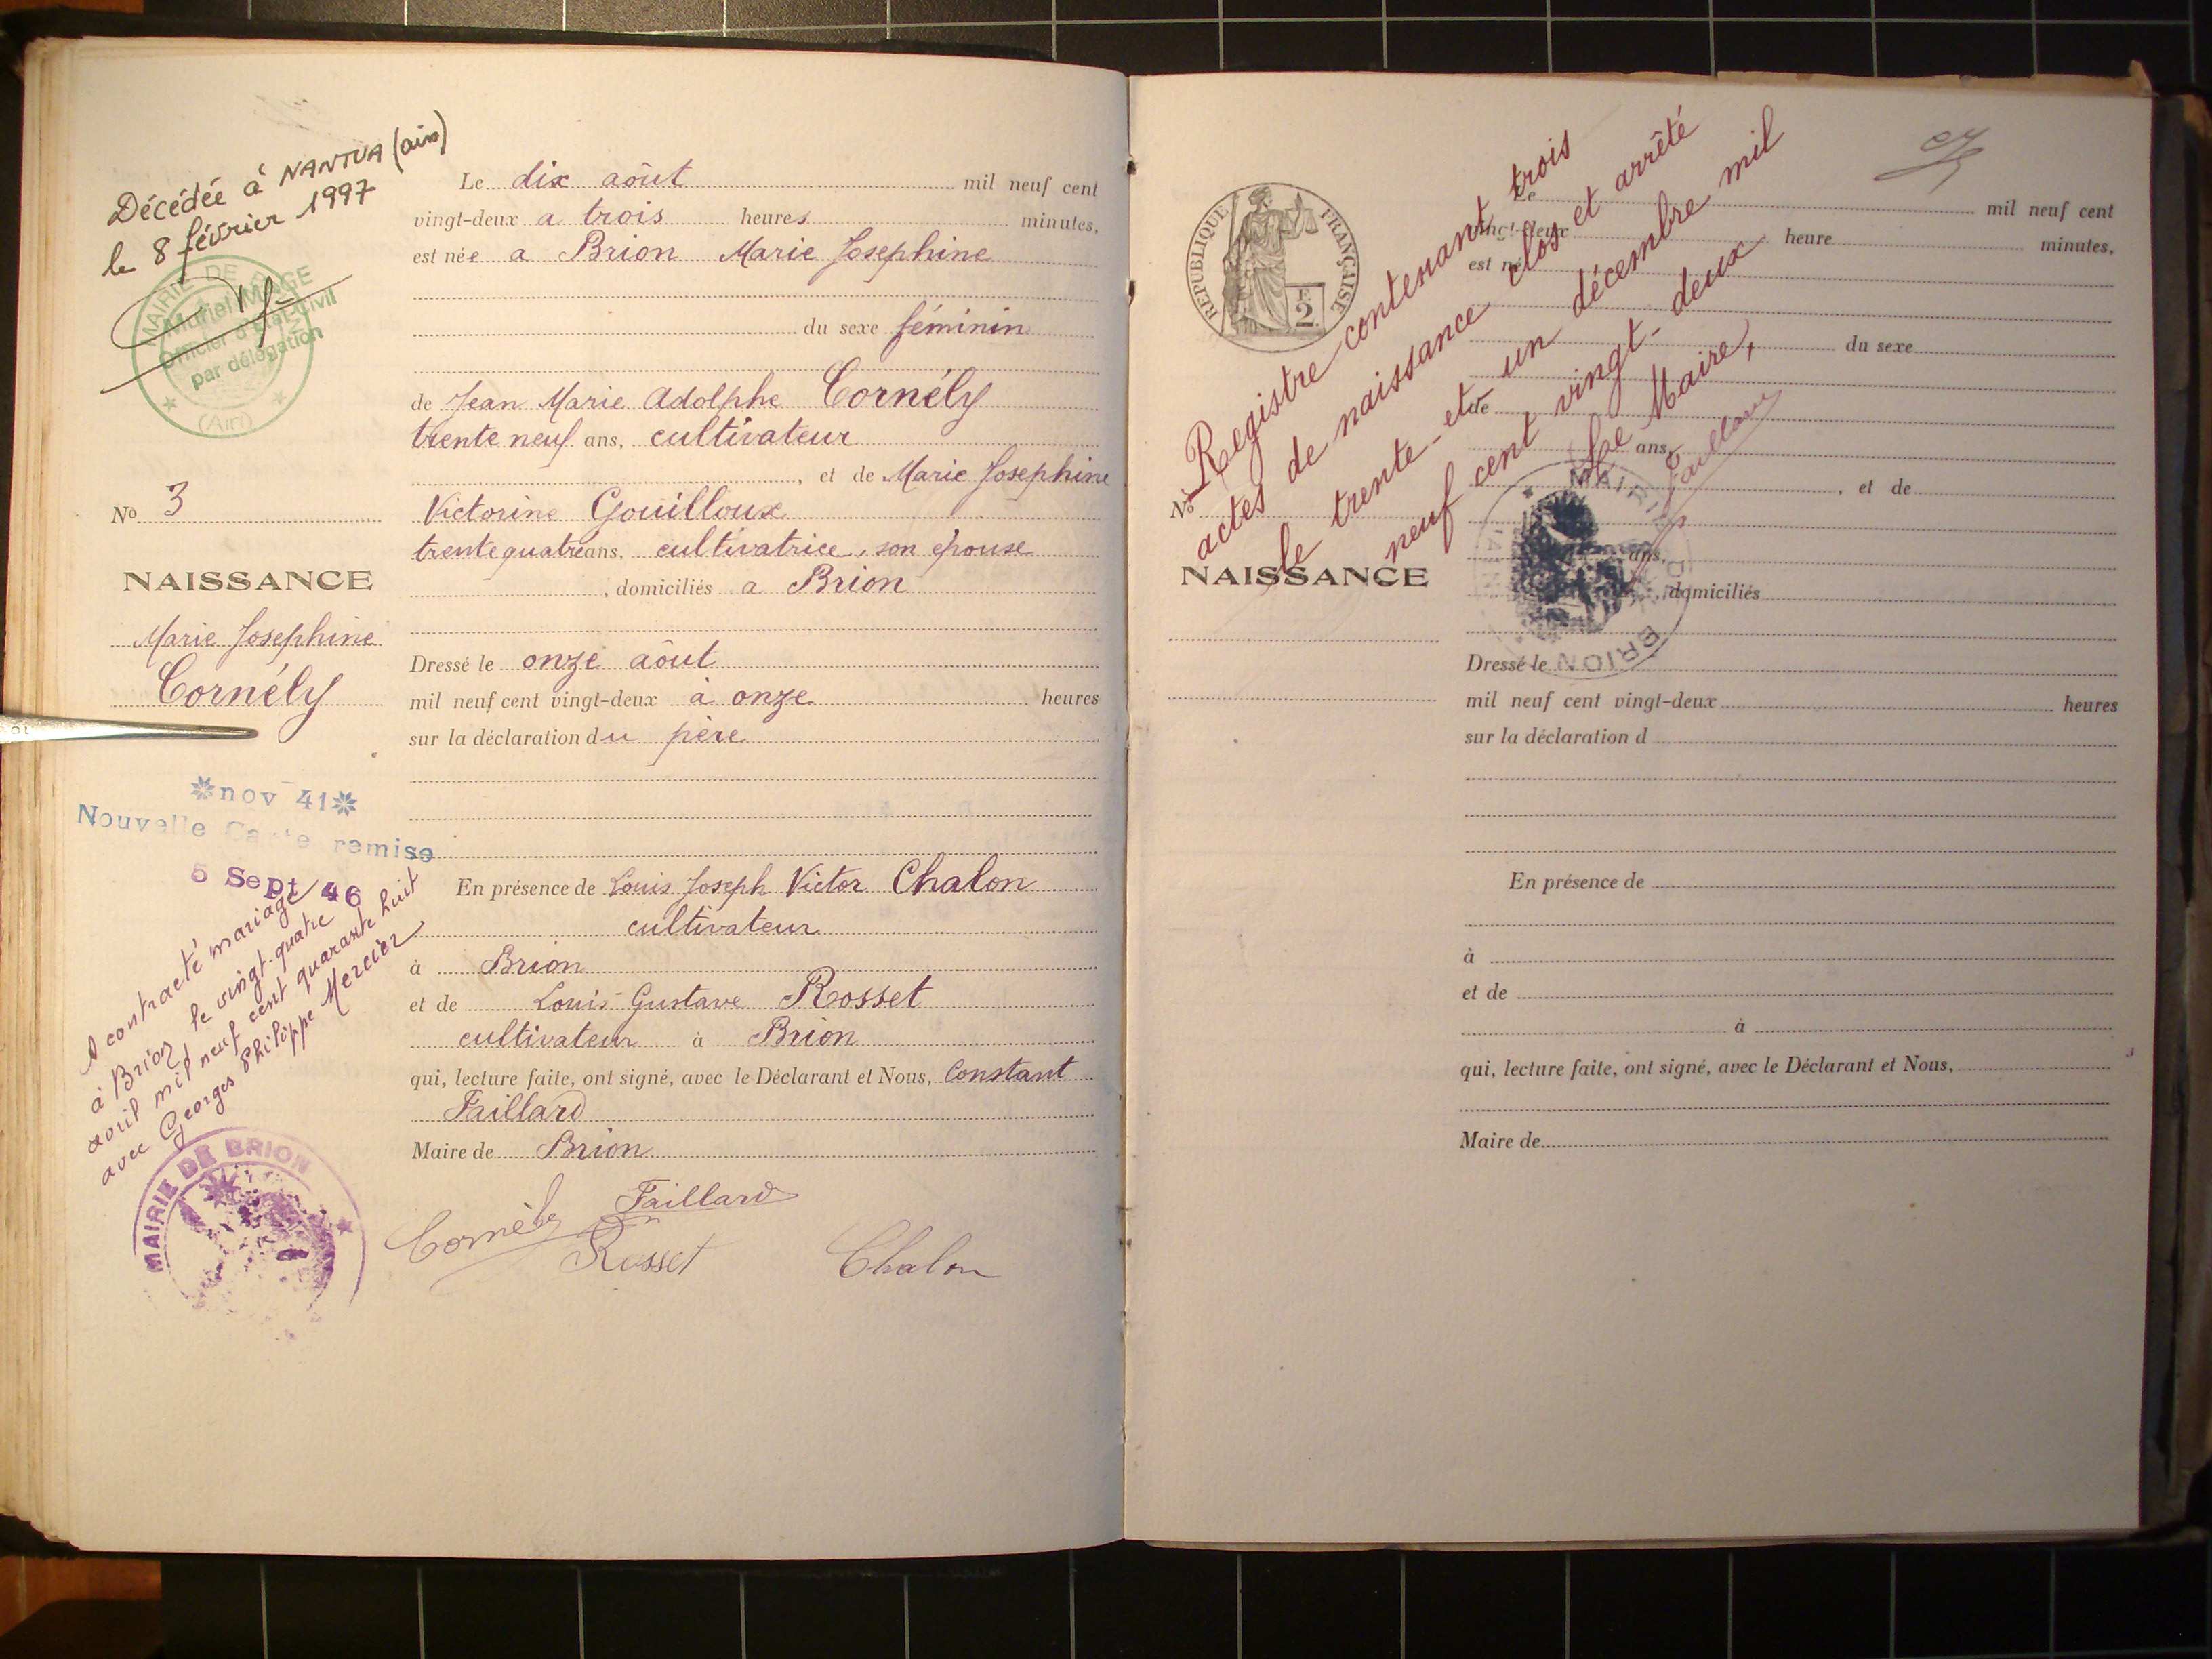 Décédée à NANTUA (ain)
le 8 février 1997
MAIRIE DE
Muriel MAGE
Officier d'Etat-Civil
par délégation
(Ain)
No 3
NAISSANCE
Marie Josephine
Cornély
*nov 41*
Nouvelle Carte remise
5 Sept 46
A contracté mariage
à Brion le vingt-quatre
avril mil neuf cent quarante huit
avec Georges Philippe Mercier
MAIRIE DE BRION
Le dix aôut mil neuf cent
vingt-deux a trois heures minutes,
est née a Brion Marie Josephine
du sexe féminin
de Jean Marie Adolphe Cornély
trente neuf ans, cultivateur
, et de Marie Josephine
Victorine Gouilloux
trente quatre ans, cultivatrice, son épouse
, domiciliés a Brion
Dressé le onze aôut
mil neuf cent vingt-deux à onze heures
sur la déclaration du père
En présence de Louis Joseph Victor Chalon
cultivateur
à Brion
et de Louis Gustave Rosset
cultivateur à Brion
qui, lecture faite, ont signé, avec le Déclarant et Nous, Constant
Faillard
Maire de Brion
Cornély Faillard
Rosset Chalon
REPUBLIQUE FRANÇAISE
2 F
Registre contenant trois
actes de naissance clos et arrêté
le trente-et-un décembre mil
neuf cent vingt-deux
Le Maire,
Faillard
MAIRIE DE BRION
No
NAISSANCE
Le mil neuf cent
vingt-deux heure minutes,
est né
du sexe
de
ans,
, et de
ans,
, domiciliés
Dressé le
mil neuf cent vingt-deux heures
sur la déclaration d
En présence de
à
et de
à
qui, lecture faite, ont signé, avec le Déclarant et Nous,
Maire de